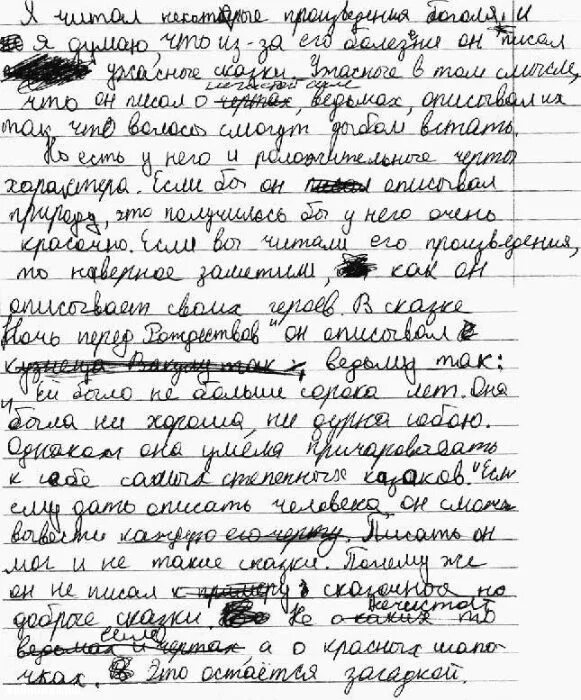 Я читал некоторые произведения Гоголя, и
я думаю, что из-за его болезни он писал
ужасные сказки. Ужасные в том смысле,
нечистой силе
что он писал о чертах, ведьмах, описывал их
так, что волосы смогут дыбом встать.
Но есть у него и положительные черты
характера. Если бы он писал описывал
природу, это получилось бы у него очень
красочно. Если вы читали его произведения,
то наверное заметили, как он
описывает своих героев. В сказке
Ночь перед Рождеством" он описывал
кузнеца Вакулу так, ведьму так:
" Ей было не больше сорока лет. Она
была ни хороша, ни дурна собою.
Однакож она умела причаровывать
к себе самых степенных казаков." Если
ему дать описать человека, он сможет
вывести каждую его черту. Писать он
мог и не такие сказки. Почему же
он не писал к примеру сказочные но
нечистой
добрые сказки. Не о каких то
силе
ведьмах и чертах а о красных шапо-
чках. Это остаётся загадкой.